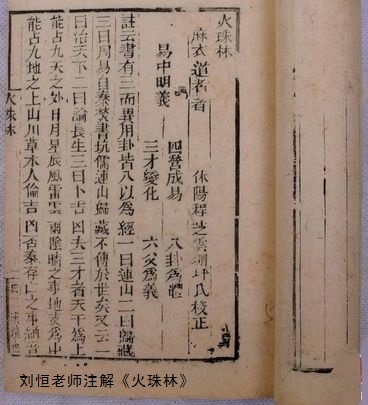 火珠林
麻衣道者著 休陽程芝雲潤坪氏校正
易中明義
四營成易 八卦為體
三才變化 六爻為義
註云書有三而異用卦皆八以為經一曰連山二曰歸藏
三曰周易自秦焚書坑儒連山歸藏不傳於世矣又云一
曰治天下二曰論長生三曰卜吉凶夫三才者天干為上
能占九天之外日月星辰風雷雲雨陰晴之事地支為中
能占九地之上山川草木人倫吉凶否泰存亡之事納音
火珠林
刘恒老师注解《火珠林》